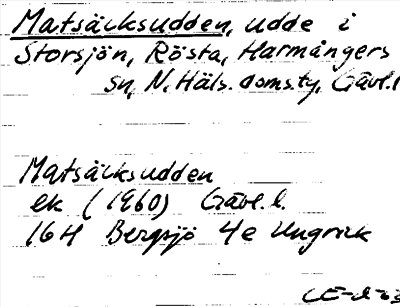 Matsäcksudden, udde i
Storsjön, Rösta, Harmångers
sn, N. Häls. doms.ty, Gävl. l
Matsäcksudden
ek (1960) Gävl. l.
16H Bergsjö 4e